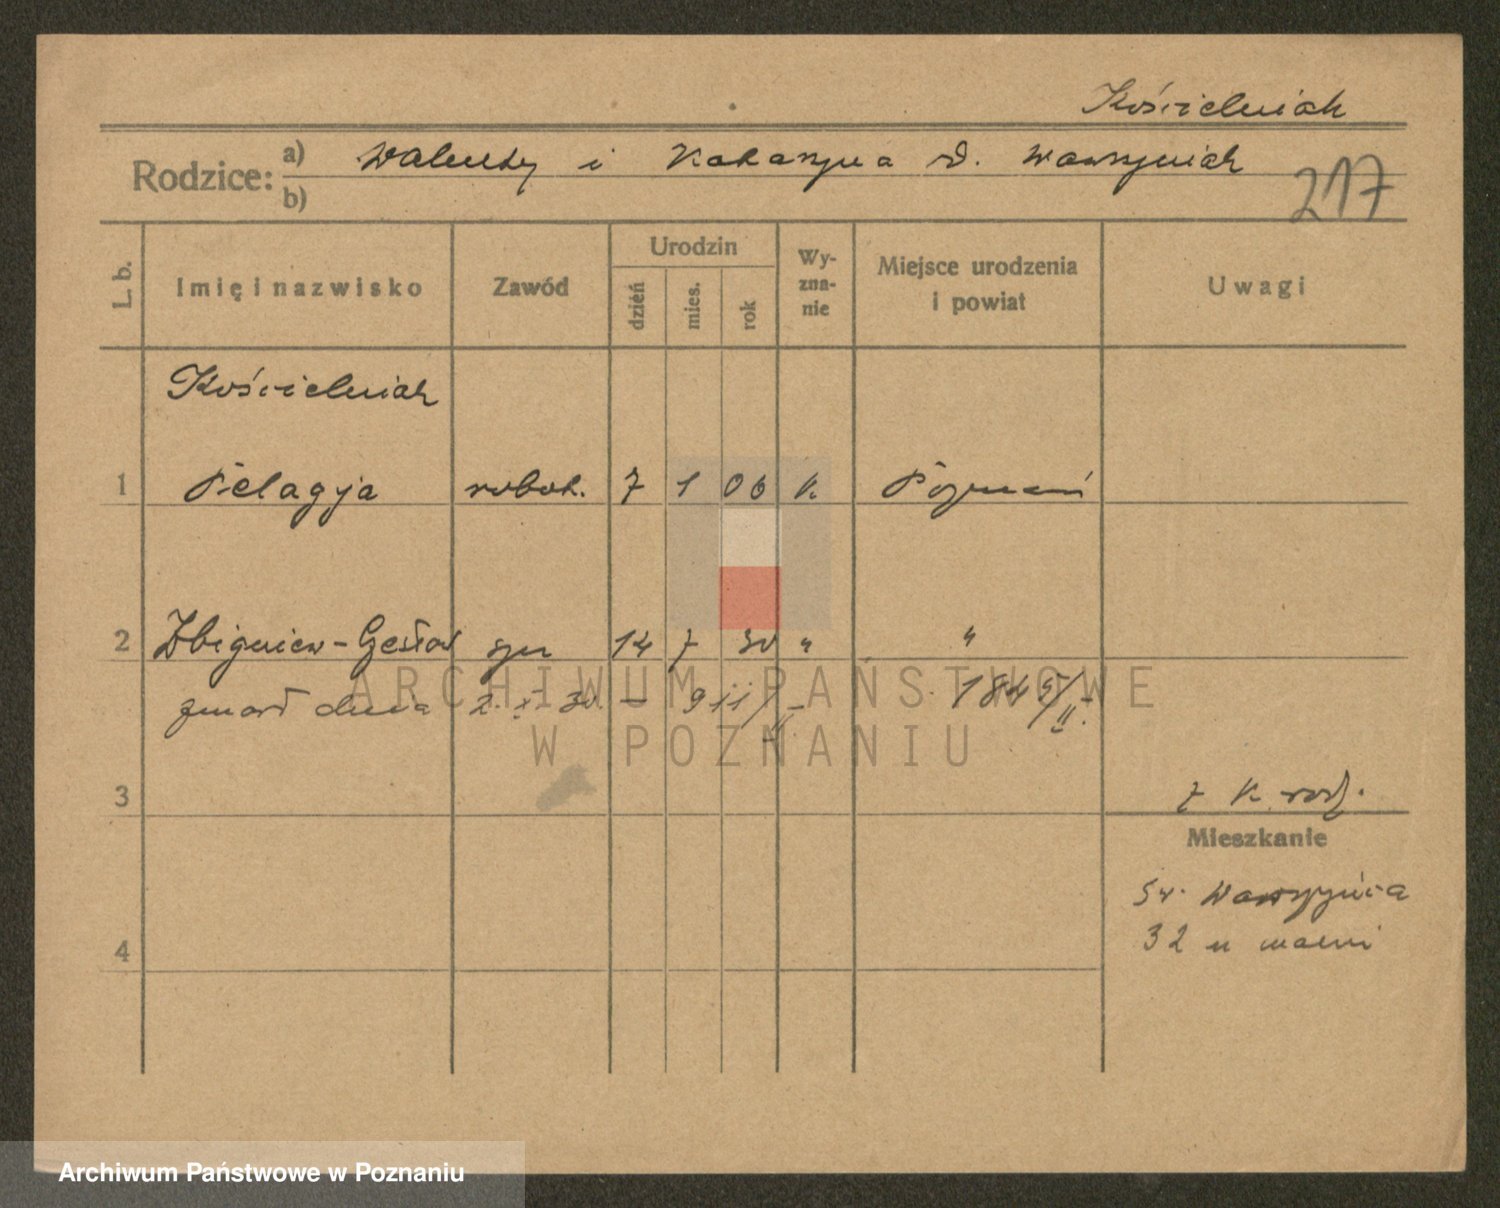 Kościelniak
Rodzice: a) Walenty i Katarzyna d. Wawrzyniak
b)
217
L. b. Imię i nazwisko Zawód Urodzin dzień mies. rok Wy-zna-nie Miejsce urodzenia i powiat Uwagi
Kościelniak
1 Pelagja robot. 7 1 06 k. Poznań
2 Zbigniew-Czesław syn 14 7 30 " "
zmarł dnia 2. x. 30. – 911/II – 1845/II.
3
z k. rodz.
Mieszkanie
Św. Wawrzyńca
32 u
4
ARCHIWUM PAŃSTWOWE
W POZNANIU
Archiwum Państwowe w Poznaniu